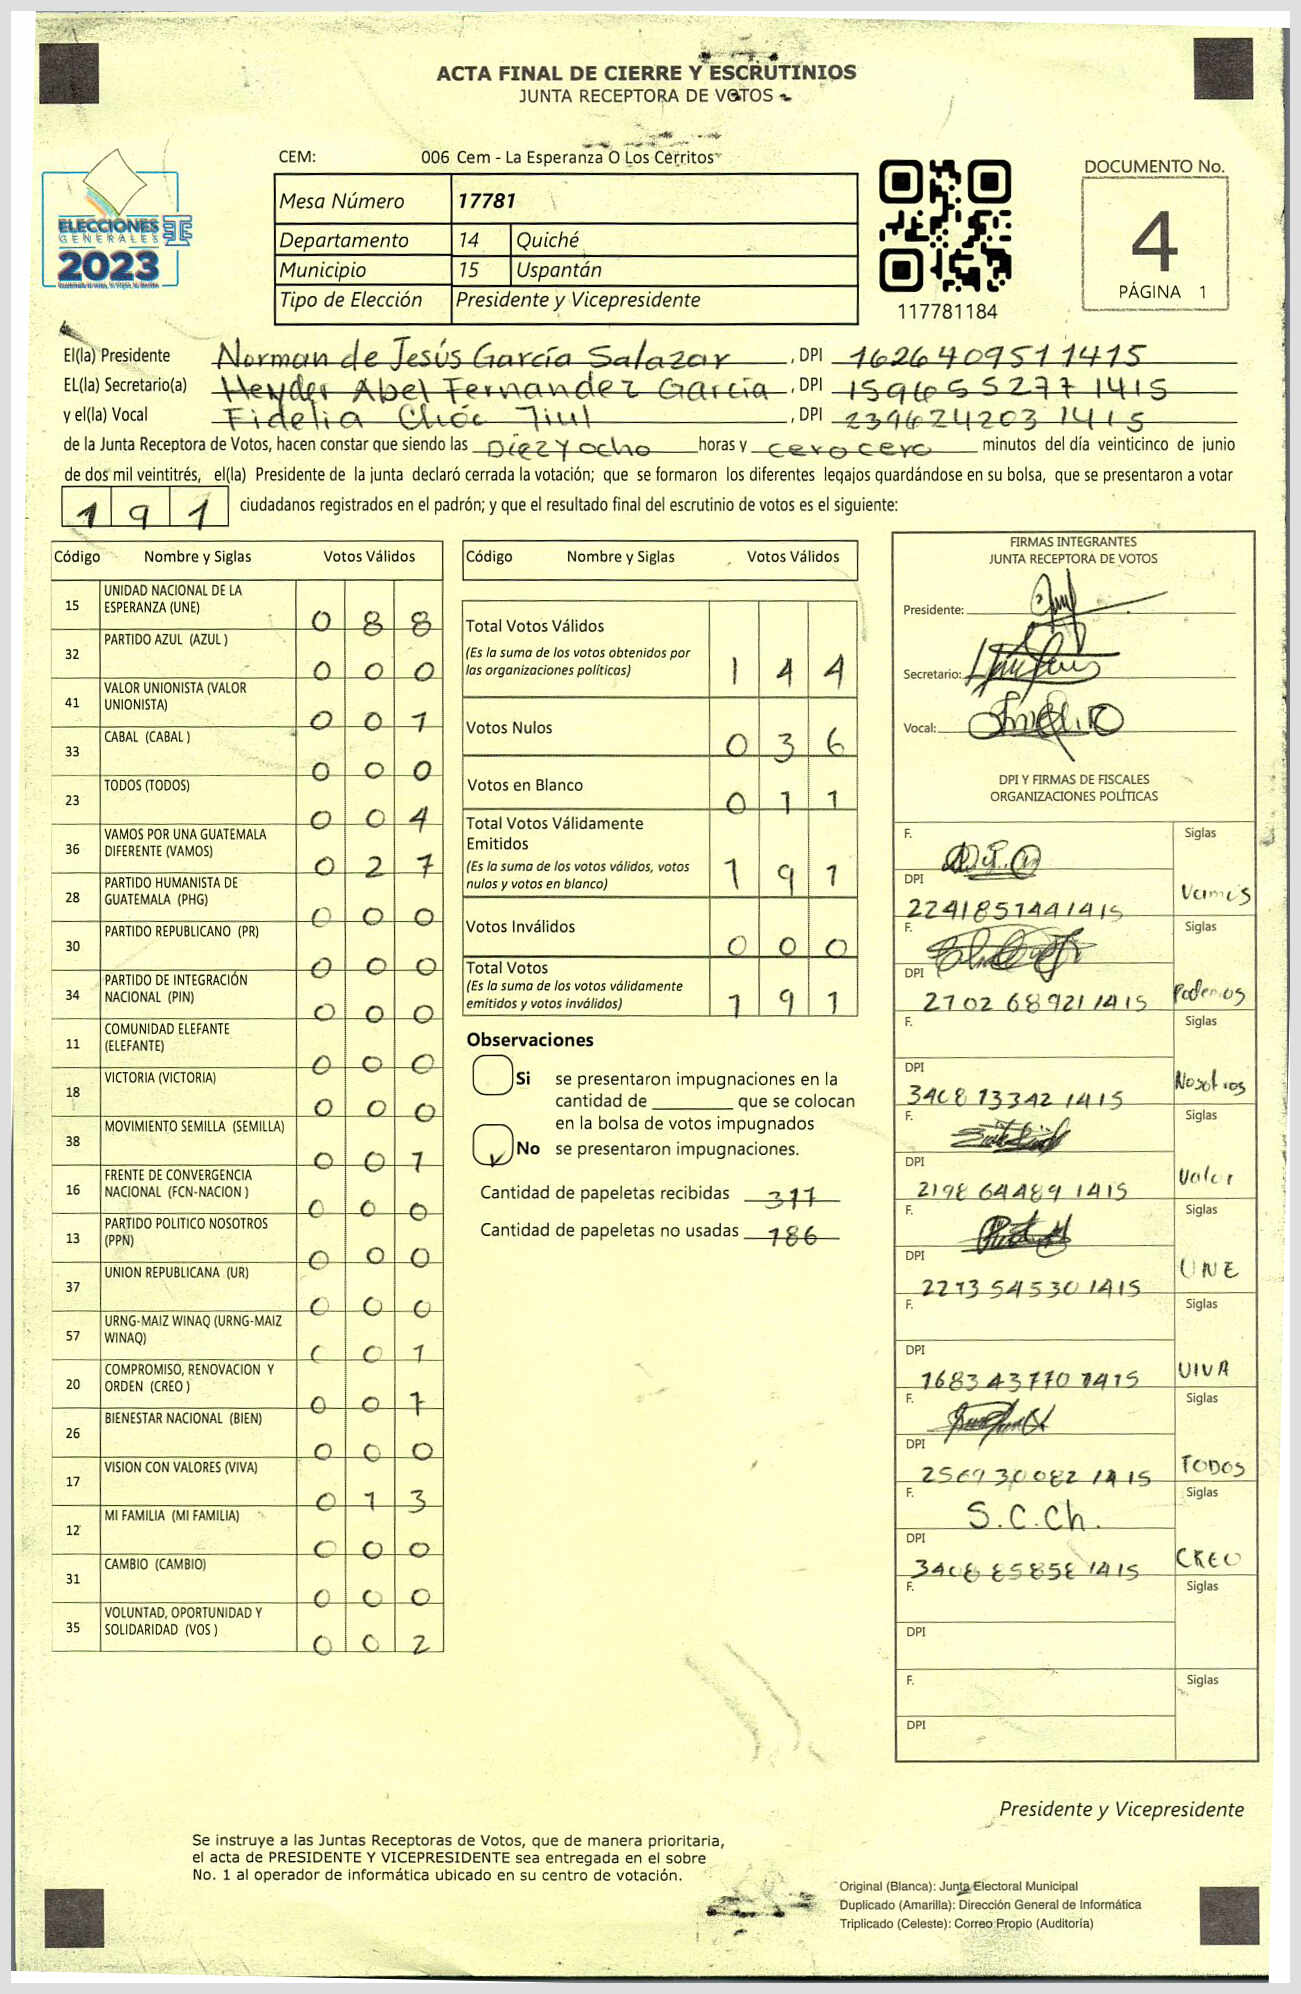 ACTA FINAL DE CIERRE Y ESCRUTINIOS
JUNTA RECEPTORA DE VOTOS
CEM: 006 Cem - La Esperanza O Los Cerritos
ELECCIONES
GENERALES
2023
Mesa Número 17781
Departamento 14 Quiché
Municipio 15 Uspantán
Tipo de Elección Presidente y Vicepresidente
117781184
DOCUMENTO No.
4
PÁGINA 1
El(la) Presidente Norman de Jesús García Salazar, DPI 1626409511415
EL(la) Secretario(a) Heyder Abel Fernandez García, DPI 1596552771415
y el(la) Vocal Fidelia Choc Tiul, DPI 2396242031415
de la Junta Receptora de Votos, hacen constar que siendo las Diez y ocho horas y cero cero minutos del día veinticinco de junio
de dos mil veintitrés, el(la) Presidente de la junta declaró cerrada la votación; que se formaron los diferentes legajos guardándose en su bolsa, que se presentaron a votar
191 ciudadanos registrados en el padrón; y que el resultado final del escrutinio de votos es el siguiente:
Código Nombre y Siglas Votos Válidos
15 UNIDAD NACIONAL DE LA ESPERANZA (UNE) 0 8 8
32 PARTIDO AZUL (AZUL ) 0 0 0
41 VALOR UNIONISTA (VALOR UNIONISTA) 0 0 1
33 CABAL (CABAL ) 0 0 0
23 TODOS (TODOS) 0 0 4
36 VAMOS POR UNA GUATEMALA DIFERENTE (VAMOS) 0 2 7
28 PARTIDO HUMANISTA DE GUATEMALA (PHG) 0 0 0
30 PARTIDO REPUBLICANO (PR) 0 0 0
34 PARTIDO DE INTEGRACIÓN NACIONAL (PIN) 0 0 0
11 COMUNIDAD ELEFANTE (ELEFANTE) 0 0 0
18 VICTORIA (VICTORIA) 0 0 0
38 MOVIMIENTO SEMILLA (SEMILLA) 0 0 1
16 FRENTE DE CONVERGENCIA NACIONAL (FCN-NACION ) 0 0 0
13 PARTIDO POLITICO NOSOTROS (PPN) 0 0 0
37 UNION REPUBLICANA (UR) 0 0 0
57 URNG-MAIZ WINAQ (URNG-MAIZ WINAQ) 0 0 1
20 COMPROMISO, RENOVACION Y ORDEN (CREO ) 0 0 7
26 BIENESTAR NACIONAL (BIEN) 0 0 0
17 VISION CON VALORES (VIVA) 0 1 3
12 MI FAMILIA (MI FAMILIA) 0 0 0
31 CAMBIO (CAMBIO) 0 0 0
35 VOLUNTAD, OPORTUNIDAD Y SOLIDARIDAD (VOS ) 0 0 2
Código Nombre y Siglas Votos Válidos
Total Votos Válidos 1 4 4
(Es la suma de los votos obtenidos por
las organizaciones políticas)
Votos Nulos 0 3 6
Votos en Blanco 0 1 1
Total Votos Válidamente
Emitidos 1 9 1
(Es la suma de los votos válidos, votos
nulos y votos en blanco)
Votos Inválidos 0 0 0
Total Votos 1 9 1
(Es la suma de los votos válidamente
emitidos y votos inválidos)
Observaciones
Si se presentaron impugnaciones en la
cantidad de ________ que se colocan
en la bolsa de votos impugnados
No se presentaron impugnaciones.
Cantidad de papeletas recibidas 377
Cantidad de papeletas no usadas 186
FIRMAS INTEGRANTES
JUNTA RECEPTORA DE VOTOS
Presidente:
Secretario:
Vocal:
DPI Y FIRMAS DE FISCALES
ORGANIZACIONES POLÍTICAS
F. Siglas
DPI 2241857441415 Vamos
F. Siglas
DPI 2702689211415 Podemos
F. Siglas
DPI 3408133421415 Nosotros
F. Siglas
DPI 2198644891415 Valor
F. Siglas
DPI 2213545301415 UNE
F. Siglas
DPI 1683437701415 VIVA
F. Siglas
DPI 2569300821415 TODOS
F. S.C.Ch. Siglas
DPI 3408858581415 CREO
F. Siglas
DPI
F. Siglas
DPI
Presidente y Vicepresidente
Se instruye a las Juntas Receptoras de Votos, que de manera prioritaria,
el acta de PRESIDENTE Y VICEPRESIDENTE sea entregada en el sobre
No. 1 al operador de informática ubicado en su centro de votación.
Original (Blanca): Junta Electoral Municipal
Duplicado (Amarilla): Dirección General de Informática
Triplicado (Celeste): Correo Propio (Auditoría)